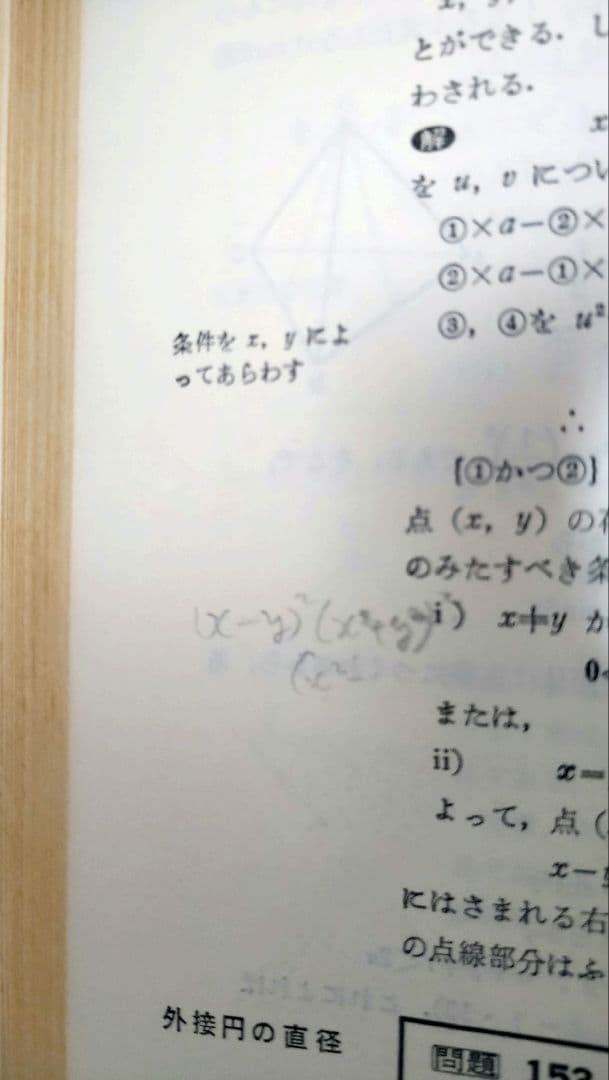 とができる.
わされる.
解
を u, v につい
①×a−②×
②×a−①×
条件を x, y によ
ってあらわす
③, ④を u²
∴
{①かつ②}
点 (x, y) の
のみたすべき条
(x−y)²(x²+y²)
i) x+y か
または,
ii) x=
よって, 点 (
x−
にはさまれる右
の点線部分はふ
外接円の直径
問題 153